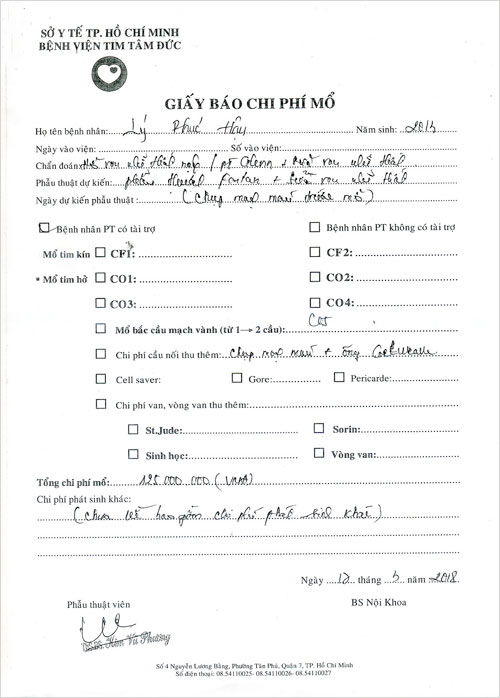 SỞ Y TẾ TP. HỒ CHÍ MINH
BỆNH VIỆN TIM TÂM ĐỨC
GIẤY BÁO CHI PHÍ MỔ
Họ tên bệnh nhân: Lý Phúc Hậu Năm sinh: 2013
Ngày vào viện: Số vào viện:
Chẩn đoán: van nhĩ thất / pt Glenn + van nhĩ thất
Phẫu thuật dự kiến: phẫu thuật fontan + van nhĩ thất
Ngày dự kiến phẫu thuật : (chụp mạch máu trước mổ)
Bệnh nhân PT có tài trợ Bệnh nhân PT không có tài trợ
Mổ tim kín CF1: CF2:
* Mổ tim hở CO1: CO2:
CO3: CO4:
Mổ bắc cầu mạch vành (từ 1→ 2 cầu):
Chi phí cầu nối thu thêm: chụp mạch máu + ống
Cell saver: Gore: Pericarde:
Chi phí van, vòng van thu thêm:
St.Jude: Sorin:
Sinh học: Vòng van:
Tổng chi phí mổ: 125 000 000 (VNĐ)
Chi phí phát sinh khác:
(chưa kể bao gồm chi phí phát sinh khác)
Ngày 12 tháng 3 năm 2018
Phẫu thuật viên BS Nội Khoa
Kim Vũ Phương
Số 4 Nguyễn Lương Bằng, Phường Tân Phú, Quận 7, TP. Hồ Chí Minh
Số điện thoại: 08.54110025- 08.54110026- 08.54110027